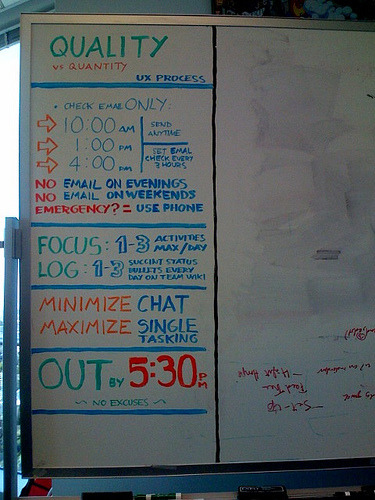 QUALITY
vs QUANTITY
UX PROCESS
• CHECK EMAIL ONLY:
10:00 AM
1:00 PM
4:00 PM
SEND
ANYTIME
SET EMAIL
CHECK EVERY
3 HOURS
NO EMAIL ON EVENINGS
NO EMAIL ON WEEKENDS
EMERGENCY? = USE PHONE
FOCUS: 1-3 ACTIVITIES
MAX/DAY
LOG: 1-3 SUCCINT STATUS
BULLETS EVERY
DAY ON TEAM WIKI
MINIMIZE CHAT
MAXIMIZE SINGLE
TASKING
OUT BY 5:30 PM
~ NO EXCUSES ~
— Set-Up